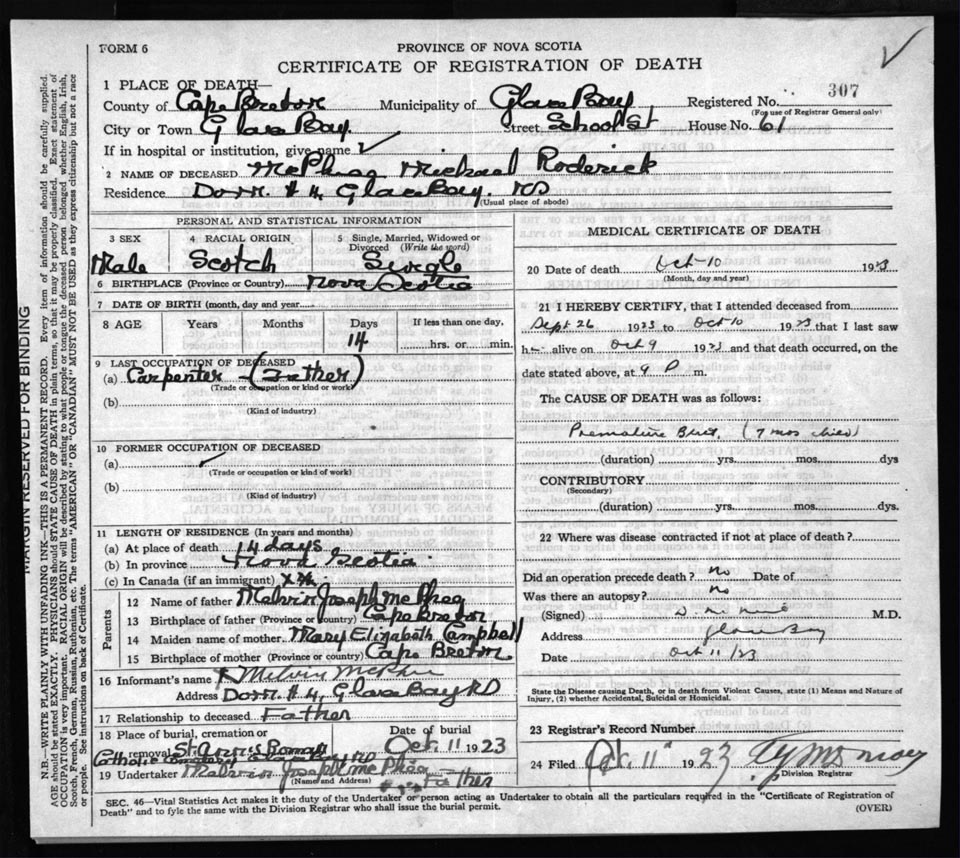 FORM 6
PROVINCE OF NOVA SCOTIA
CERTIFICATE OF REGISTRATION OF DEATH
1 PLACE OF DEATH—
County of Cape Breton Municipality of Glace Bay Registered No. 307
(For use of Registrar General only)
City or Town Glace Bay. Street School St House No. 61
If in hospital or institution, give name
2 NAME OF DECEASED McPhee Michael Roderick
Residence Dom. # 4, Glace Bay. NS
(Usual place of abode)
PERSONAL AND STATISTICAL INFORMATION
3 SEX 4 RACIAL ORIGIN 5 Single, Married, Widowed or Divorced (Write the word)
Male Scotch Single
6 BIRTHPLACE (Province or Country) Nova Scotia
7 DATE OF BIRTH (month, day and year)
8 AGE Years Months Days If less than one day,
14 hrs. or min.
9 LAST OCCUPATION OF DECEASED
(a) Carpenter (Father)
(Trade or occupation or kind of work)
(b)
(Kind of industry)
10 FORMER OCCUPATION OF DECEASED
(a)
(Trade or occupation or kind of work)
(b)
(Kind of industry)
11 LENGTH OF RESIDENCE (In years and months)
(a) At place of death 14 days
(b) In province Nova Scotia
(c) In Canada (if an immigrant)
Parents
12 Name of father Melvin Joseph McPhee
13 Birthplace of father (Province or Country) Cape Breton
14 Maiden name of mother Mary Elizabeth Campbell
15 Birthplace of mother (Province or country) Cape Breton
16 Informant's name Melvin McPhee
Address Dom. # 4, Glace Bay NS
17 Relationship to deceased Father
18 Place of burial, cremation or removal St Ann's Roman Catholic Date of burial Oct. 11 1923
19 Undertaker Melvin Joseph McPhee
(Name and Address) Father
MEDICAL CERTIFICATE OF DEATH
20 Date of death Oct-10 1923
(Month, day and year)
21 I HEREBY CERTIFY, that I attended deceased from
Sept 26 1923 to Oct 10 1923 that I last saw
h alive on Oct 9 1923 and that death occurred, on the
date stated above, at 9 P m.
The CAUSE OF DEATH was as follows:
Premature Birth, (7 mos child)
(duration) yrs. mos. dys
CONTRIBUTORY
(Secondary)
(duration) yrs. mos. dys.
22 Where was disease contracted if not at place of death?
Did an operation precede death? No Date of
Was there an autopsy? No
(Signed) M.D.
Address Glace Bay
Date Oct 11/23
State the Disease causing Death, or in death from Violent Causes, state (1) Means and Nature of
Injury, (2) whether Accidental, Suicidal or Homicidal.
23 Registrar's Record Number
24 Filed Oct. 11 1923
Division Registrar
SEC. 46—Vital Statistics Act makes it the duty of the Undertaker or person acting as Undertaker to obtain all the particulars required in the "Certificate of Registration of
Death" and to fyle the same with the Division Registrar who shall issue the burial permit.
(OVER)
MARGIN RESERVED FOR BINDING
N.B.—WRITE PLAINLY WITH UNFADING INK—THIS IS A PERMANENT RECORD. Every item of information should be carefully supplied.
AGE should be stated EXACTLY. PHYSICIANS should STATE CAUSE OF DEATH in plain terms, so that it may be properly classified. Exact statement of
OCCUPATION is very important. RACIAL ORIGIN will be described by stating to what people or tongue the deceased person belonged whether English, Irish,
Scotch, French, German, Russian, Ruthenian, etc. The terms "AMERICAN" or "CANADIAN" MUST NOT BE USED as they express citizenship but not a race
or people. See instructions on back of Certificate.